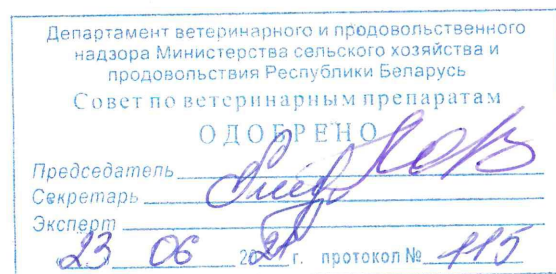 Департамент ветеринарного и продовольственного
надзора Министерства сельского хозяйства и
продовольствия Республики Беларусь
Совет по ветеринарным препаратам
ОДОБРЕНО
Председатель
Секретарь
Эксперт
23 06 2021 г. протокол № 115